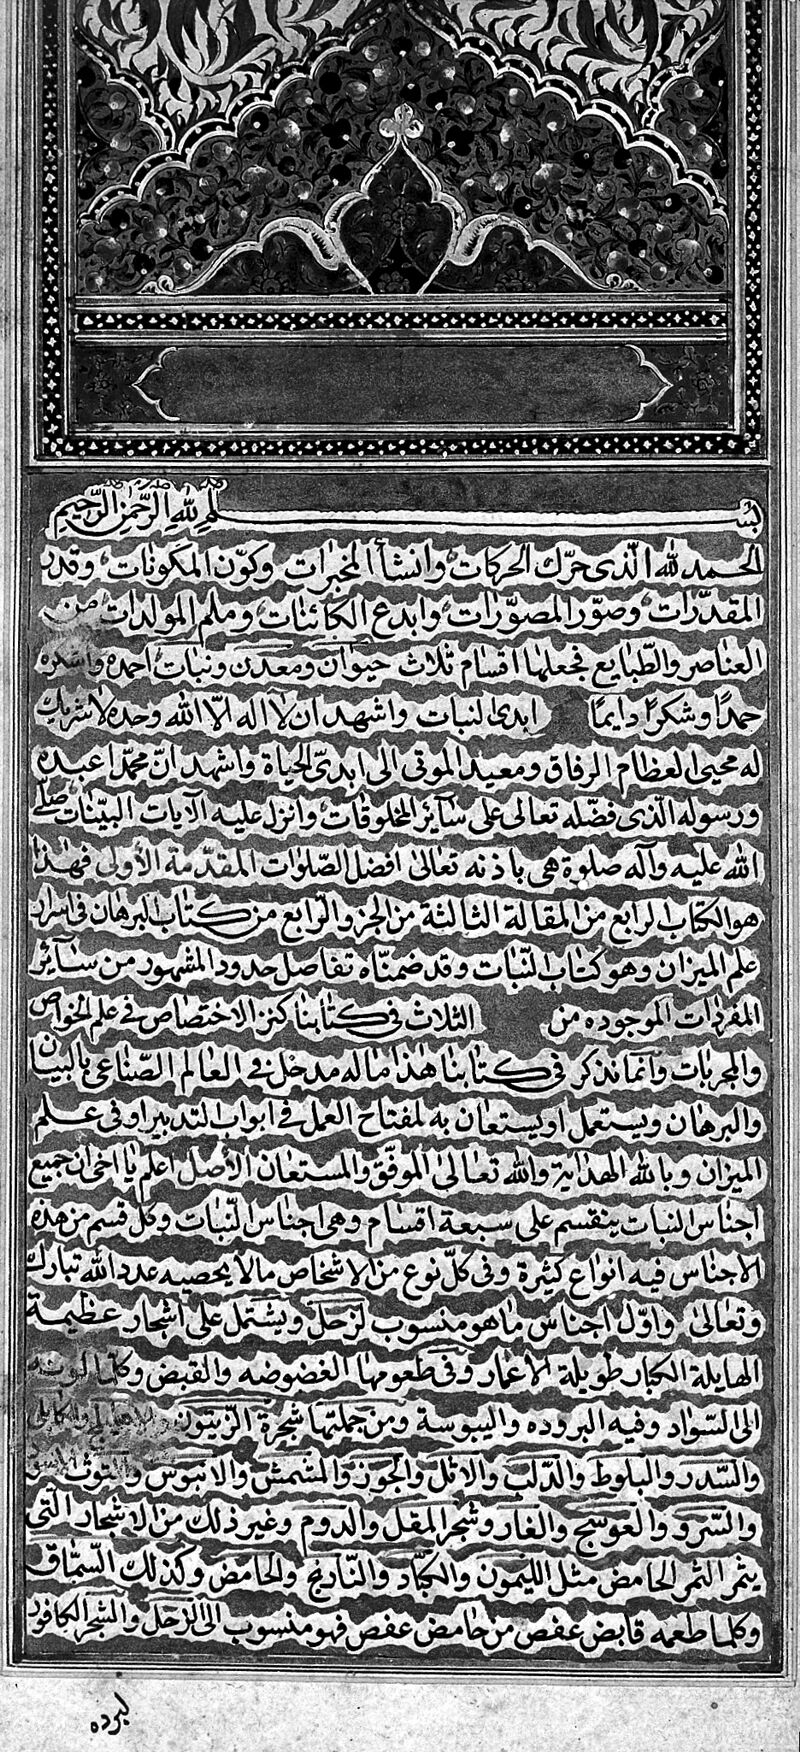 بسم الله الرحمن الرحيم
الحمد لله الّذى حرّك الحركات وانشأ المخبرات وكوّن المكونات وقدر
المقدّرات وصوّر المصوّرات وابدع الكائنات وملم المولدات من
العناصر والطّبايع فجعلها اقسام ثلاث حيوان ومعدن ونبات احمده واشكره
حمدًا وشكرًا دايمًا ابدى لنبات واشهد ان لا اله الّا الله وحده لا شريك
له محيى العظام الرفاق ومعيد الموتى الى ابدىّ الحياة واشهد انّ محمّدا عبده
ورسوله الّذى فضّله تعالى على سآئر المخلوقات وانزل عليه الآيات البيّنات صلى
الله عليه وآله صلوة هى باذنه تعالى افضل الصّلوات المقدّمة الأولى فهذا
هو الكتاب الرابع من المقالة الثالثة من الجز والرّابع من كتاب البرهان فى اسرار
علم الميزان وهو كتاب النّبات وقد ضمنّاه تفاصل حدود المشهور من سآئر
المفردات الموجوده من الثلاث فى كتابنا كنز الاختصاص فى علم الخواص
والمجربات وانما نذكر فى كتابنا هذا ما له مدخل فى العالم الصّناعى بالبيان
والبرهان ويستعمل او يستعان به لمفتاح العمل فى ابواب التدبير او فى علم
الميزان وبالله الهداية والله تعالى الموفّق والمستعان الأصل اعلم يا اخى ان جميع
اجناس النبات ينقسم على سبعة اقسام وهى اجناس النّبات وكل قسم من هذه
الاجناس فيه انواع كثيرة وفى كلّ نوع من الاشخاص ما لا يحصيه عدد الله تبارك
وتعالى واوّل اجناس ما هو منسوب لزحل ويشتمل على اشجار عظيمة
الهايلة الكبار طويلة الاعمار وفى طعومها الغضوضه والقبض وكلما لونه
الى السّواد وفيه البروده واليبوسة ومن جملتها شجرة الزّيتون
والسّدر والبلوط والدّلب والاثل والجوز والمشمش والابنوس والتوت
والسّرو والعوسج والغار وشجر المقل والدوم وغير ذلك من الاشجار الّتى
يثمر الثمر الحامض مثل الليمون والكبّاد والنّارنج والحامض وكذلك السّماق
وكلما طعمه قابض عفص من حامض عفص فهو منسوب الى الزحل والشجر الكافور
لبرده